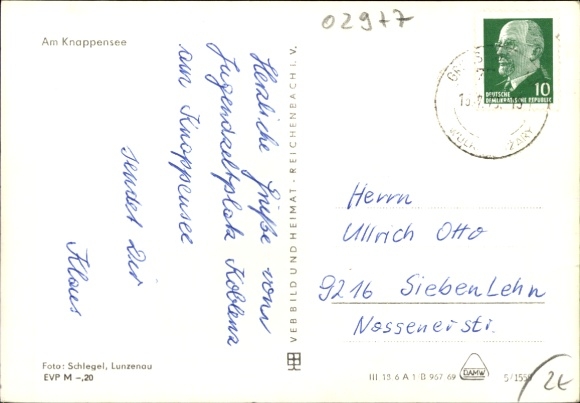 02977
Am Knappensee
Herzliche Grüße vom
Jugendzeltplatz Koblenz
am Knappensee
sendet Dir
Klaus
VEB BILD UND HEIMAT · REICHENBACH I. V.
10
DEUTSCHE
DEMOKRATISCHE REPUBLIK
Herrn
Ullrich Otto
9216 SiebenLehn
Nossenerstr.
Foto: Schlegel, Lunzenau
EVP M –,20
III 18 6 A 1 B 967 69
DAMW
2€